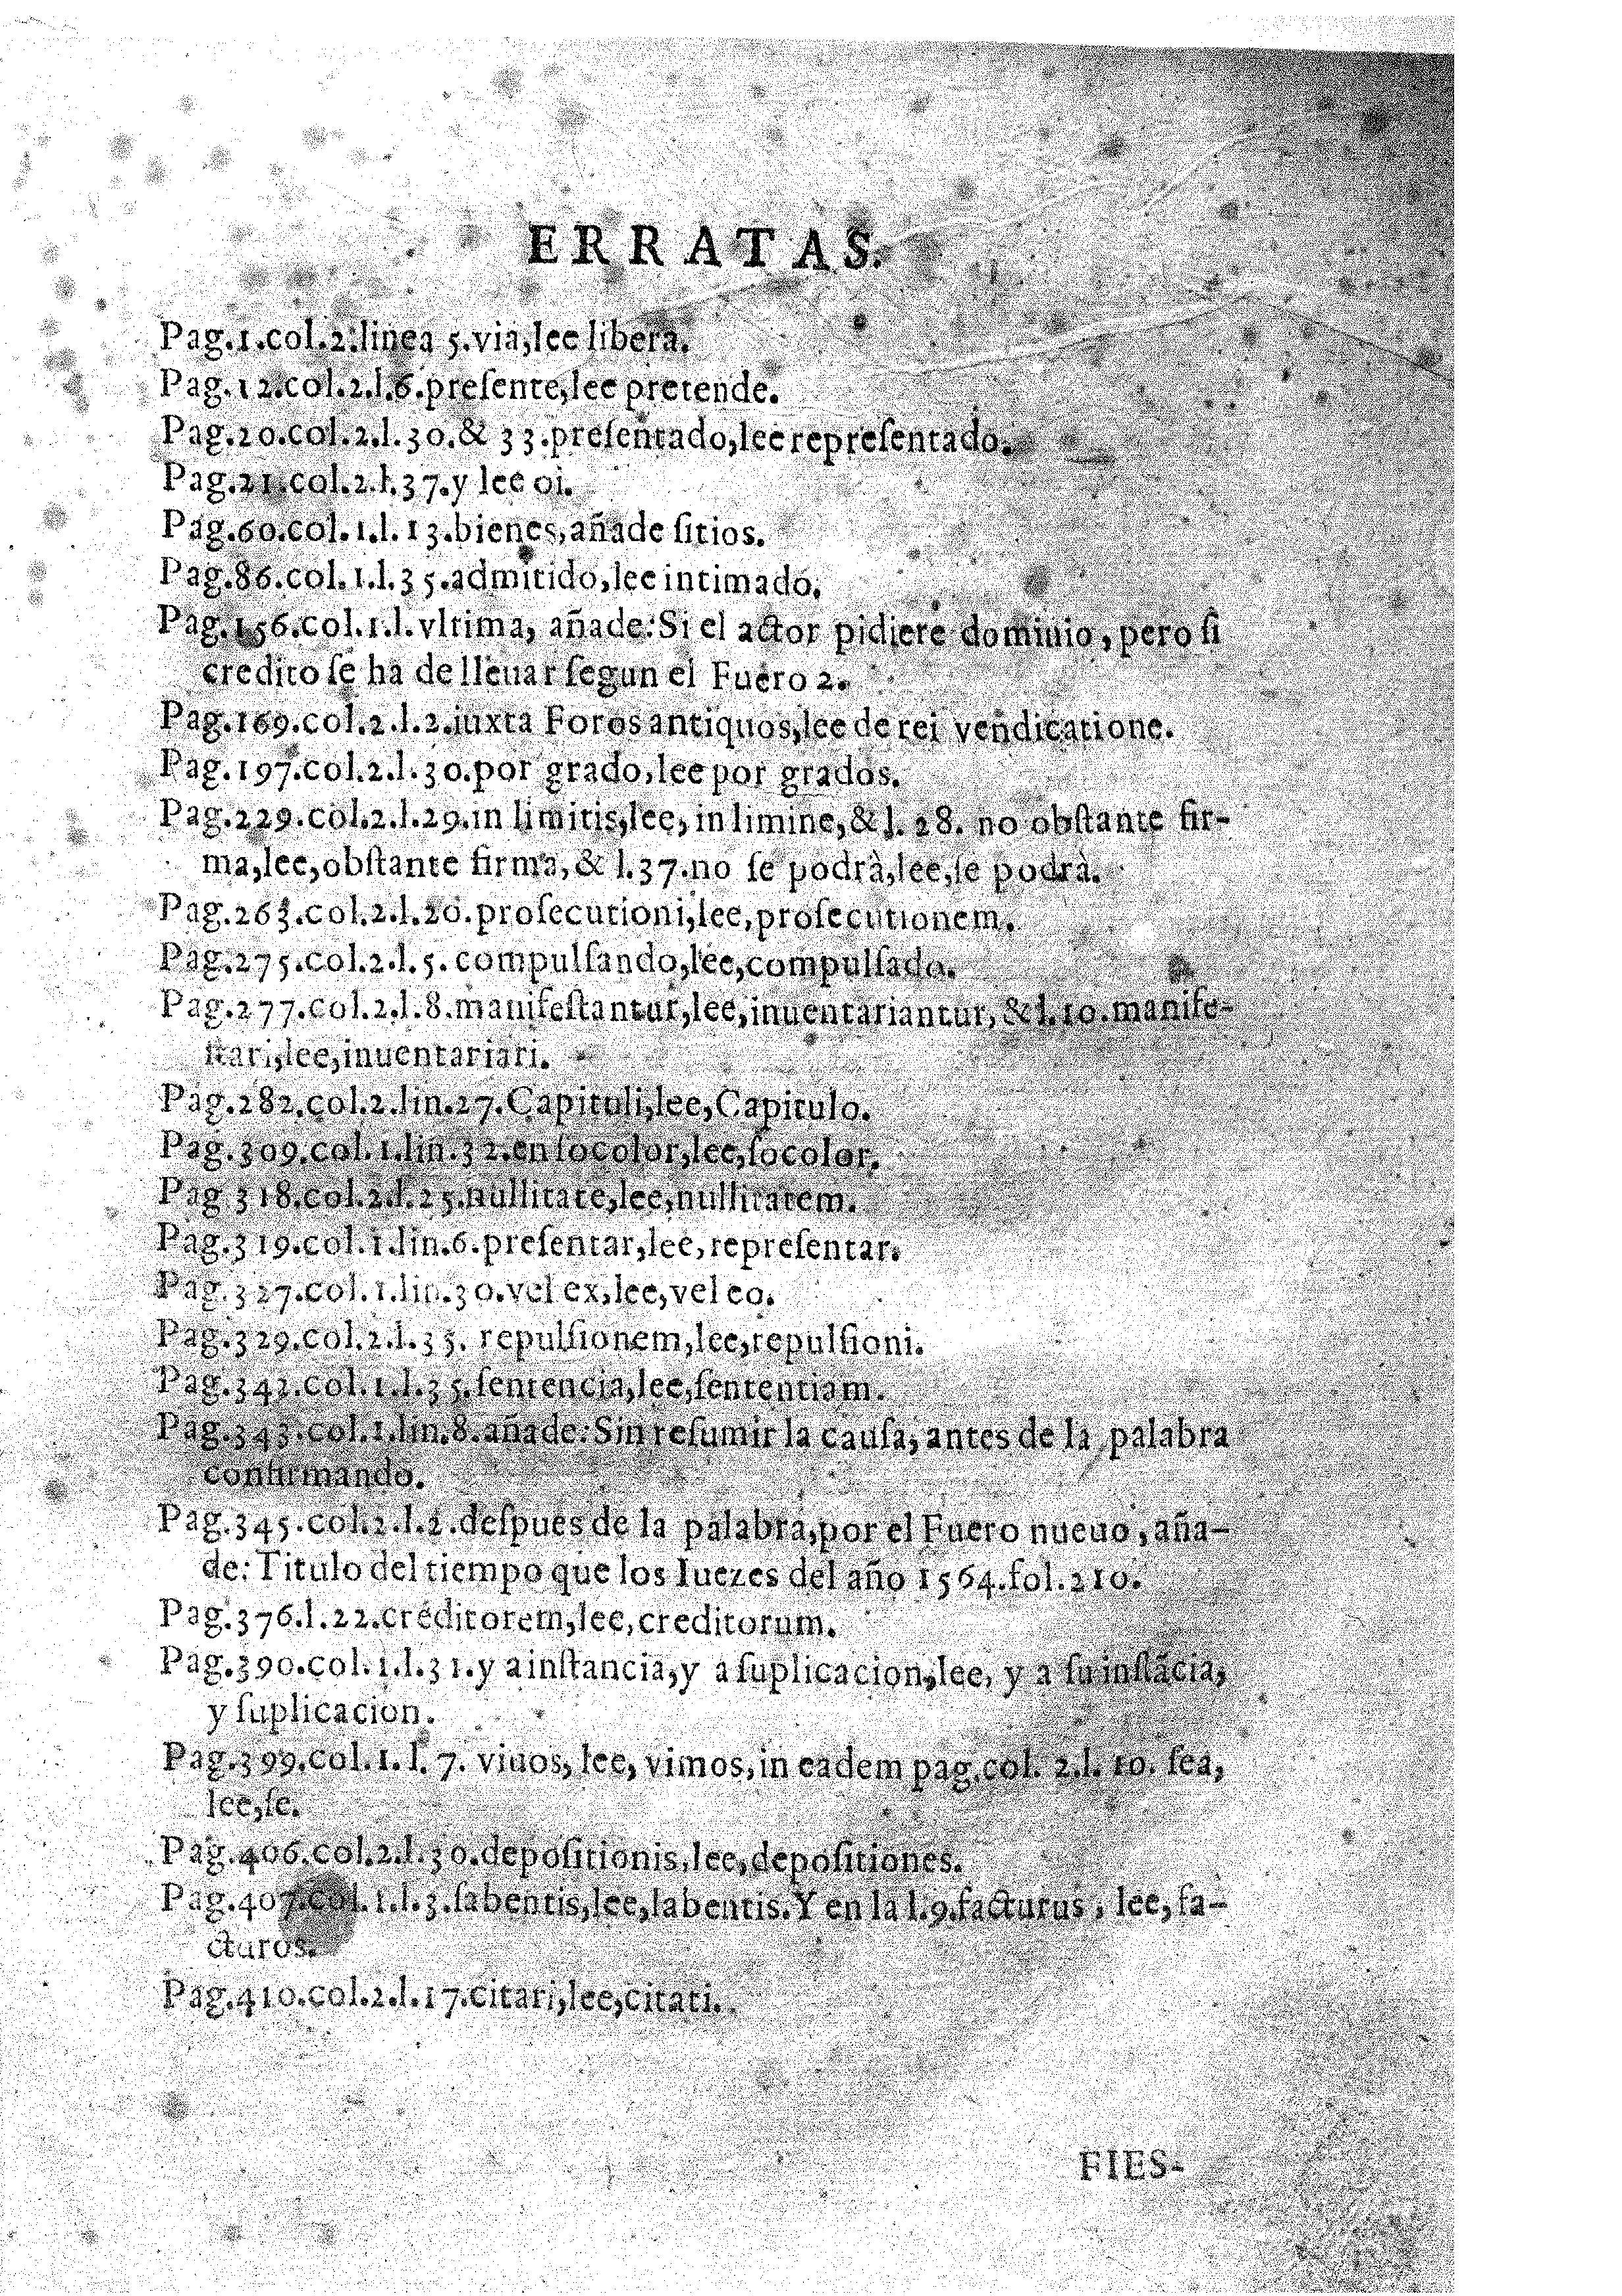 ERRATAS.
Pag.1.col.2.linea 5.via,lee libera.
Pag.12.col.2.l.6.preſente,lee pretende.
Pag.20.col.2.l.30.& 33.preſentado,lee repreſentado.
Pag.21.col.2.l.37.y lee oi.
Pag.60.col.1.l.13.bienes,añade ſitios.
Pag.86.col.1.l.35.admitido,lee intimado.
Pag.156.col.1.l.vltima, añade:Si el actor pidiere dominio, pero ſi
credito ſe ha de lleuar ſegun el Fuero 2.
Pag.169.col.2.l.2.iuxta Foros antiquos,lee de rei vendicatione.
Pag.197.col.2.l.30.por grado,lee por grados.
Pag.229.col.2.l.29.in limitis,lee, in limine,& l. 28. no obſtante fir-
ma,lee,obſtante firma,& l.37.no ſe podrà,lee,ſe podrà.
Pag.263.col.2.l.20.proſecutioni,lee,proſecutionem.
Pag.275.col.2.l.5. compulſando,lee,compulſado.
Pag.277.col.2.l.8.manifeſtantur,lee,inuentariantur,& l.10.manife-
ſtari,lee,inuentariari.
Pag.282.col.2.lin.27.Capituli,lee,Capitulo.
Pag.309.col.1.lin.32.en ſocolor,lee,ſocolor.
Pag 318.col.2.l.25.nullitate,lee,nullitatem.
Pag.319.col.1.lin.6.preſentar,lee,repreſentar.
Pag.327.col.1.lin.30.vel ex,lee,vel eo.
Pag.329.col.2.l.35. repulſionem,lee,repulſioni.
Pag.342.col.1.l.35.ſentencia,lee,ſententiam.
Pag.343.col.1.lin.8.añade:Sin reſumir la cauſa, antes de la palabra
confirmando.
Pag.345.col.2.l.2.deſpues de la palabra,por el Fuero nueuo, aña-
de:Titulo del tiempo que los Iuezes del año 1564.fol.210.
Pag.376.l.22.creditorem,lee,creditorum.
Pag.390.col.1.l.31.y a inſtancia,y a ſuplicacion,lee, y a ſu inſtãcia,
y ſuplicacion.
Pag.399.col.1.l.7. viuos, lee, vimos,in eadem pag.col. 2.l. 10. ſea,
lee,ſe.
Pag.406.col.2.l.30.depoſitionis,lee,depoſitiones.
Pag.407.col.1.l.3.ſabentis,lee,labentis.Y en la l.9.facturus, lee, fa-
cturos.
Pag.410.col.2.l.17.citari,lee,citati.
FIES-